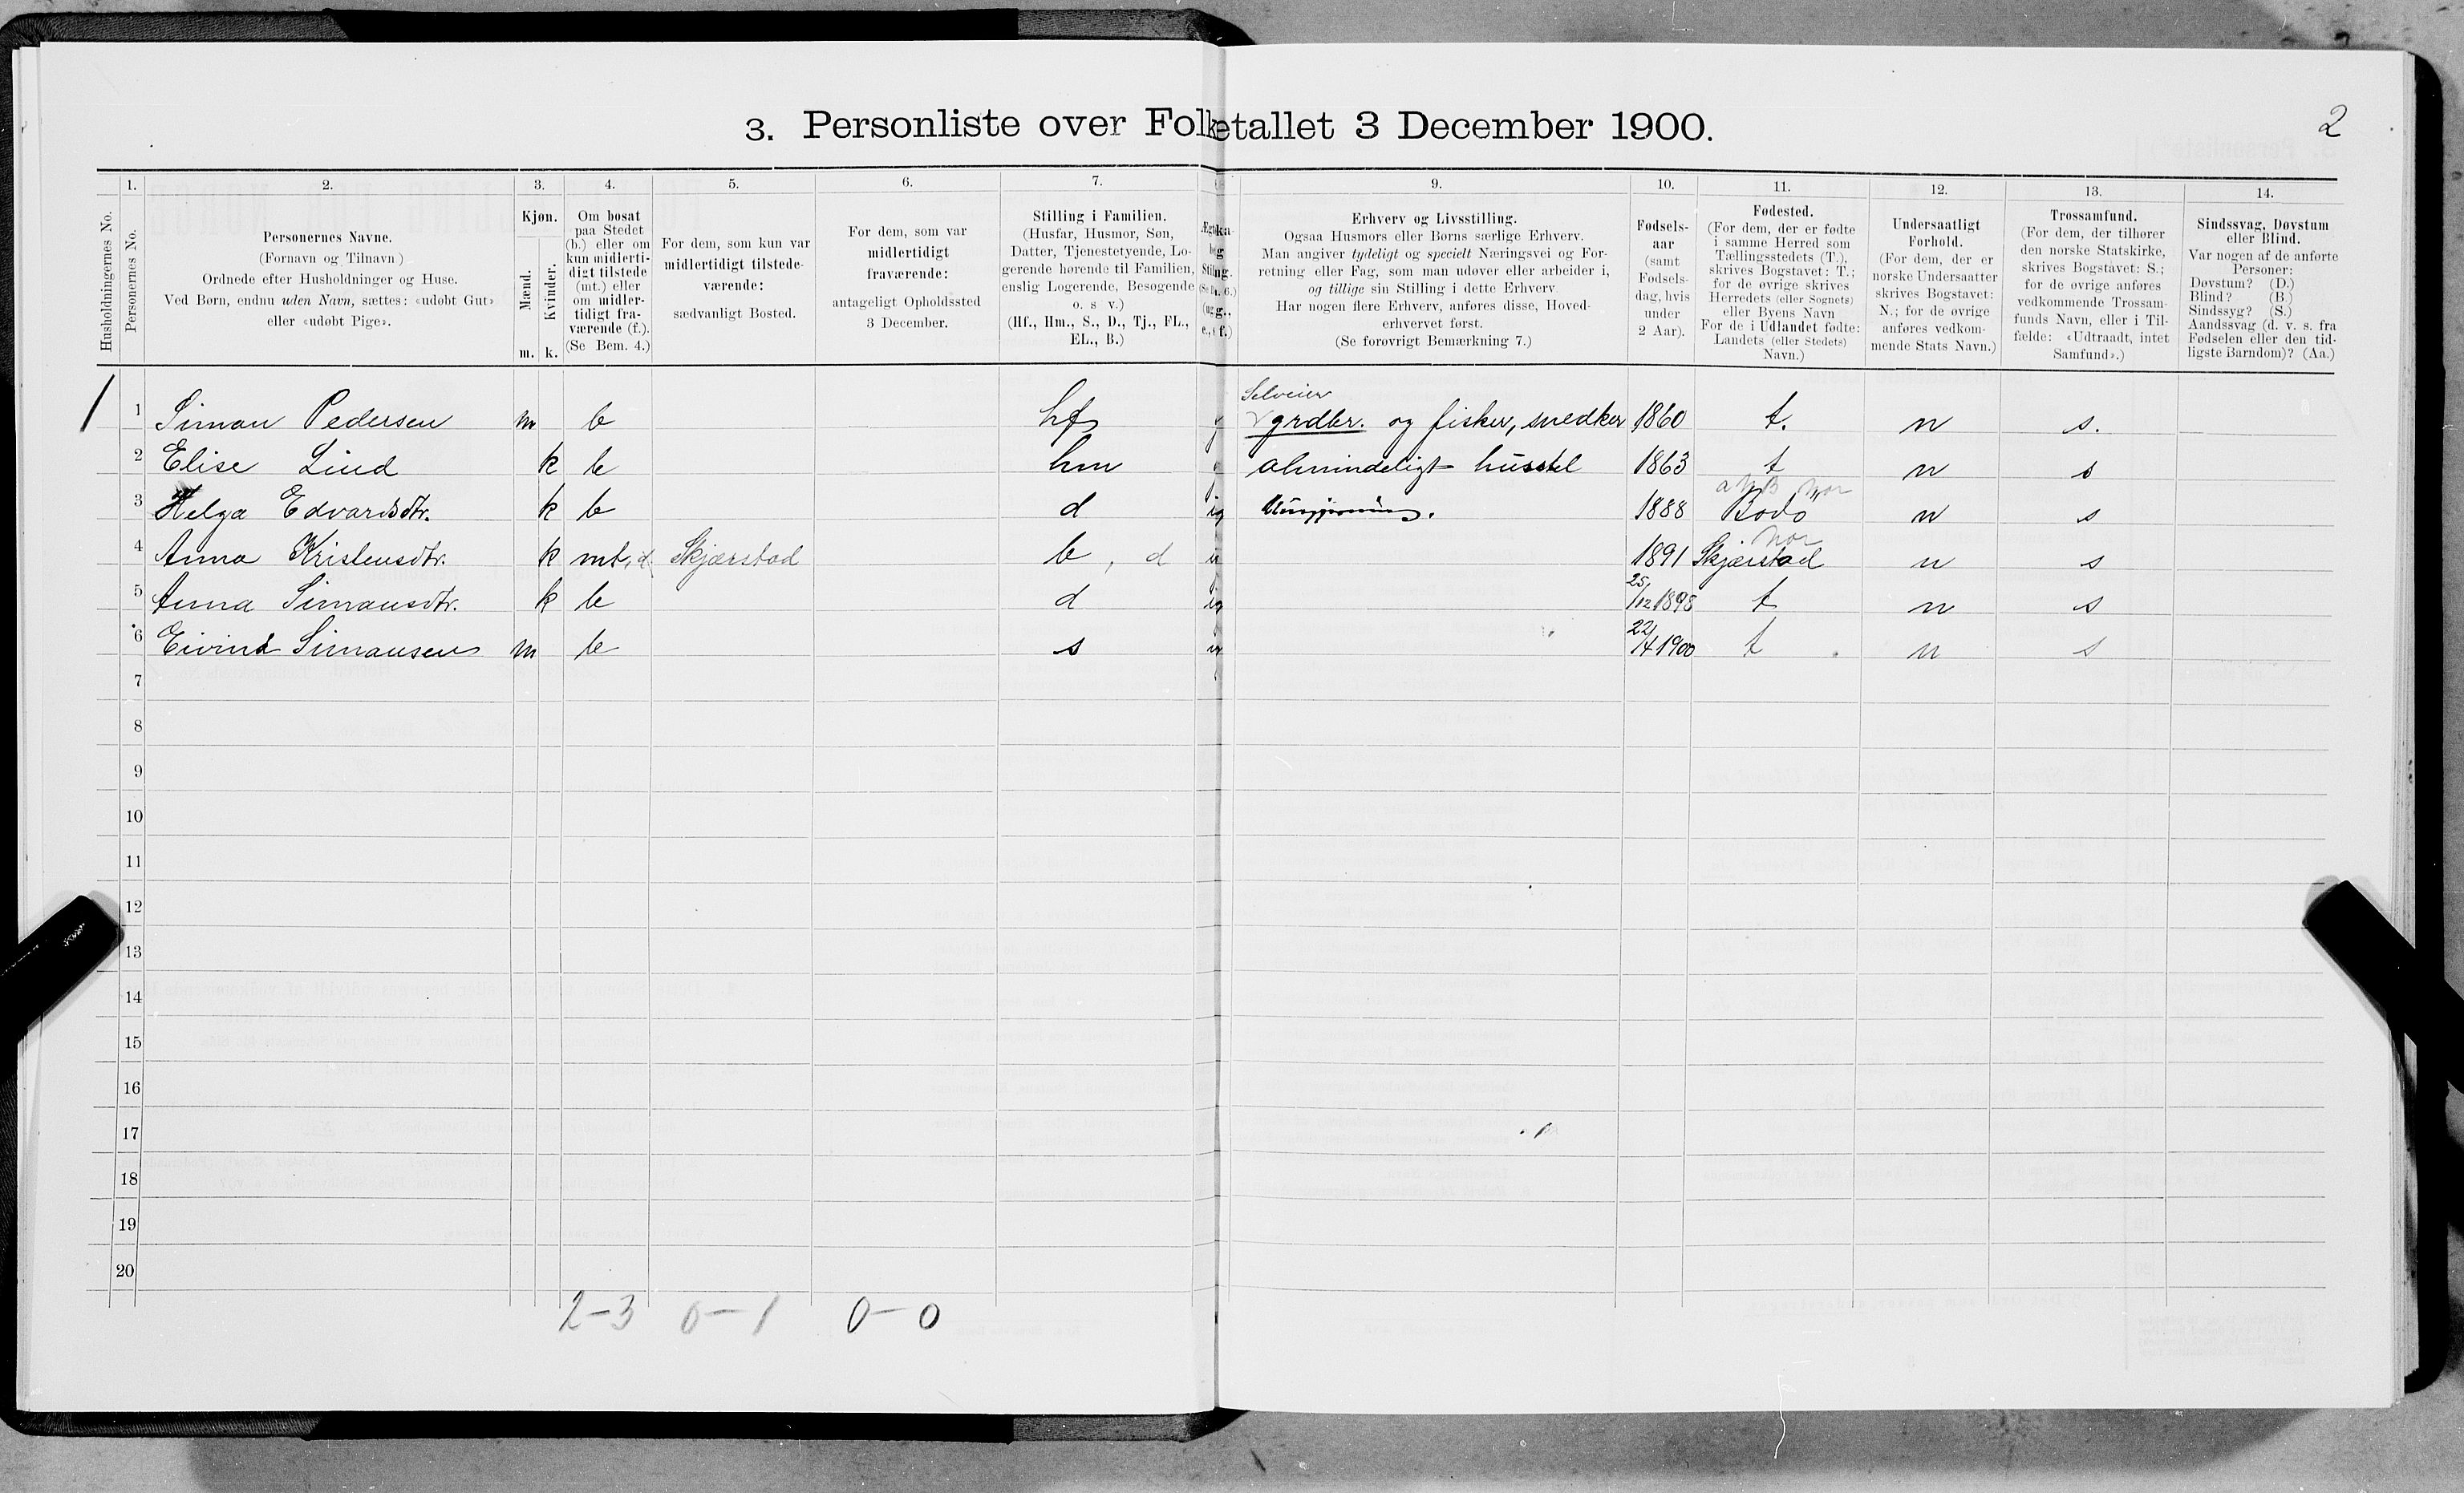 3. Personliste over Folketallet 3 December 1900.
2
Husholdningernes No.
1.
Personernes No.
2.
Personernes Navne.
(Fornavn og Tilnavn)
Ordnede efter Husholdninger og Huse.
Ved Børn, endnu uden Navn, sættes: «udøbt Gut»
eller «udøbt Pige».
3.
Kjøn.
Mænd.
Kvinder.
m. k.
4.
Om bosat
paa Stedet
(b.) eller om
kun midlerti-
digt tilstede
(mt.) eller
om midler-
tidigt fra-
værende (f.).
(Se Bem. 4.)
5.
For dem, som kun var
midlertidigt tilstede-
værende:
sædvanligt Bosted.
6.
For dem, som var
midlertidigt
fraværende:
antageligt Opholdssted
3 December.
7.
Stilling i Familien.
(Husfar, Husmor, Søn,
Datter, Tjenestetyende, Lo-
gerende hørende til Familien,
enslig Logerende, Besøgende
o. s. v.)
(Hf., Hm., S., D., Tj., FL.,
EL., B.)
9.
Erhverv og Livsstilling.
Ogsaa Husmors eller Børns særlige Erhverv.
Man angiver tydeligt og specielt Næringsvei og For-
retning eller Fag, som man udøver eller arbeider i,
og tillige sin Stilling i dette Erhverv
Har nogen flere Erhverv, anføres disse, Hoved-
erhvervet først.
(Se forøvrigt Bemærkning 7.)
10.
Fødsels-
aar
(samt
Fødsels-
dag, hvis
under
2 Aar).
11.
Fødested.
(For dem, der er fødte
i samme Herred som
Tællingsstedets (T.),
skrives Bogstavet: T.;
for de øvrige skrives
Herredets (eller Sognets)
eller Byens Navn
For de i Udlandet fødte:
Landets (eller Stedets)
Navn.)
12.
Undersaatligt
Forhold.
(For dem, der er
norske Undersaatter
skrives Bogstavet:
N.; for de øvrige
anføres vedkom-
mende Stats Navn.)
13.
Trossamfund.
(For dem, der tilhører
den norske Statskirke,
skrives Bogstavet: S.;
for de øvrige anføres
vedkommende Trossam-
funds Navn, eller i Til-
fælde: «Udtraadt, intet
Samfund».)
14.
Sindssvag, Døvstum
eller Blind.
Var nogen af de anførte
Personer:
Døvstum? (D.)
Blind? (B.)
Sindssyg? (S.)
Aandssvag (d. v. s. fra
Fødselen eller den tid-
ligste Barndom)? (Aa.)
Selveier
1 1 Siman Pedersen m b hf g grdbr. og fisker, snedker 1860 t. n s.
2 Elise Lind k b hm g almindeligt husstel 1863 t n s
3 Helga Edvardsdtr. k b d ug 1888 Bodö n s
nor
4 Anna Kristensdtr. k mt, d Skjærstad b, d 1891 Skjærstad n s
5 Anna Simansdtr. k b d ug 25/12 1898 t n s
6 Eivind Simansen m b s ug 22/4 1900 t n s
7
8
9
10
11
12
13
14
15
16
17
18
19
20
2-3 0-1 0-0